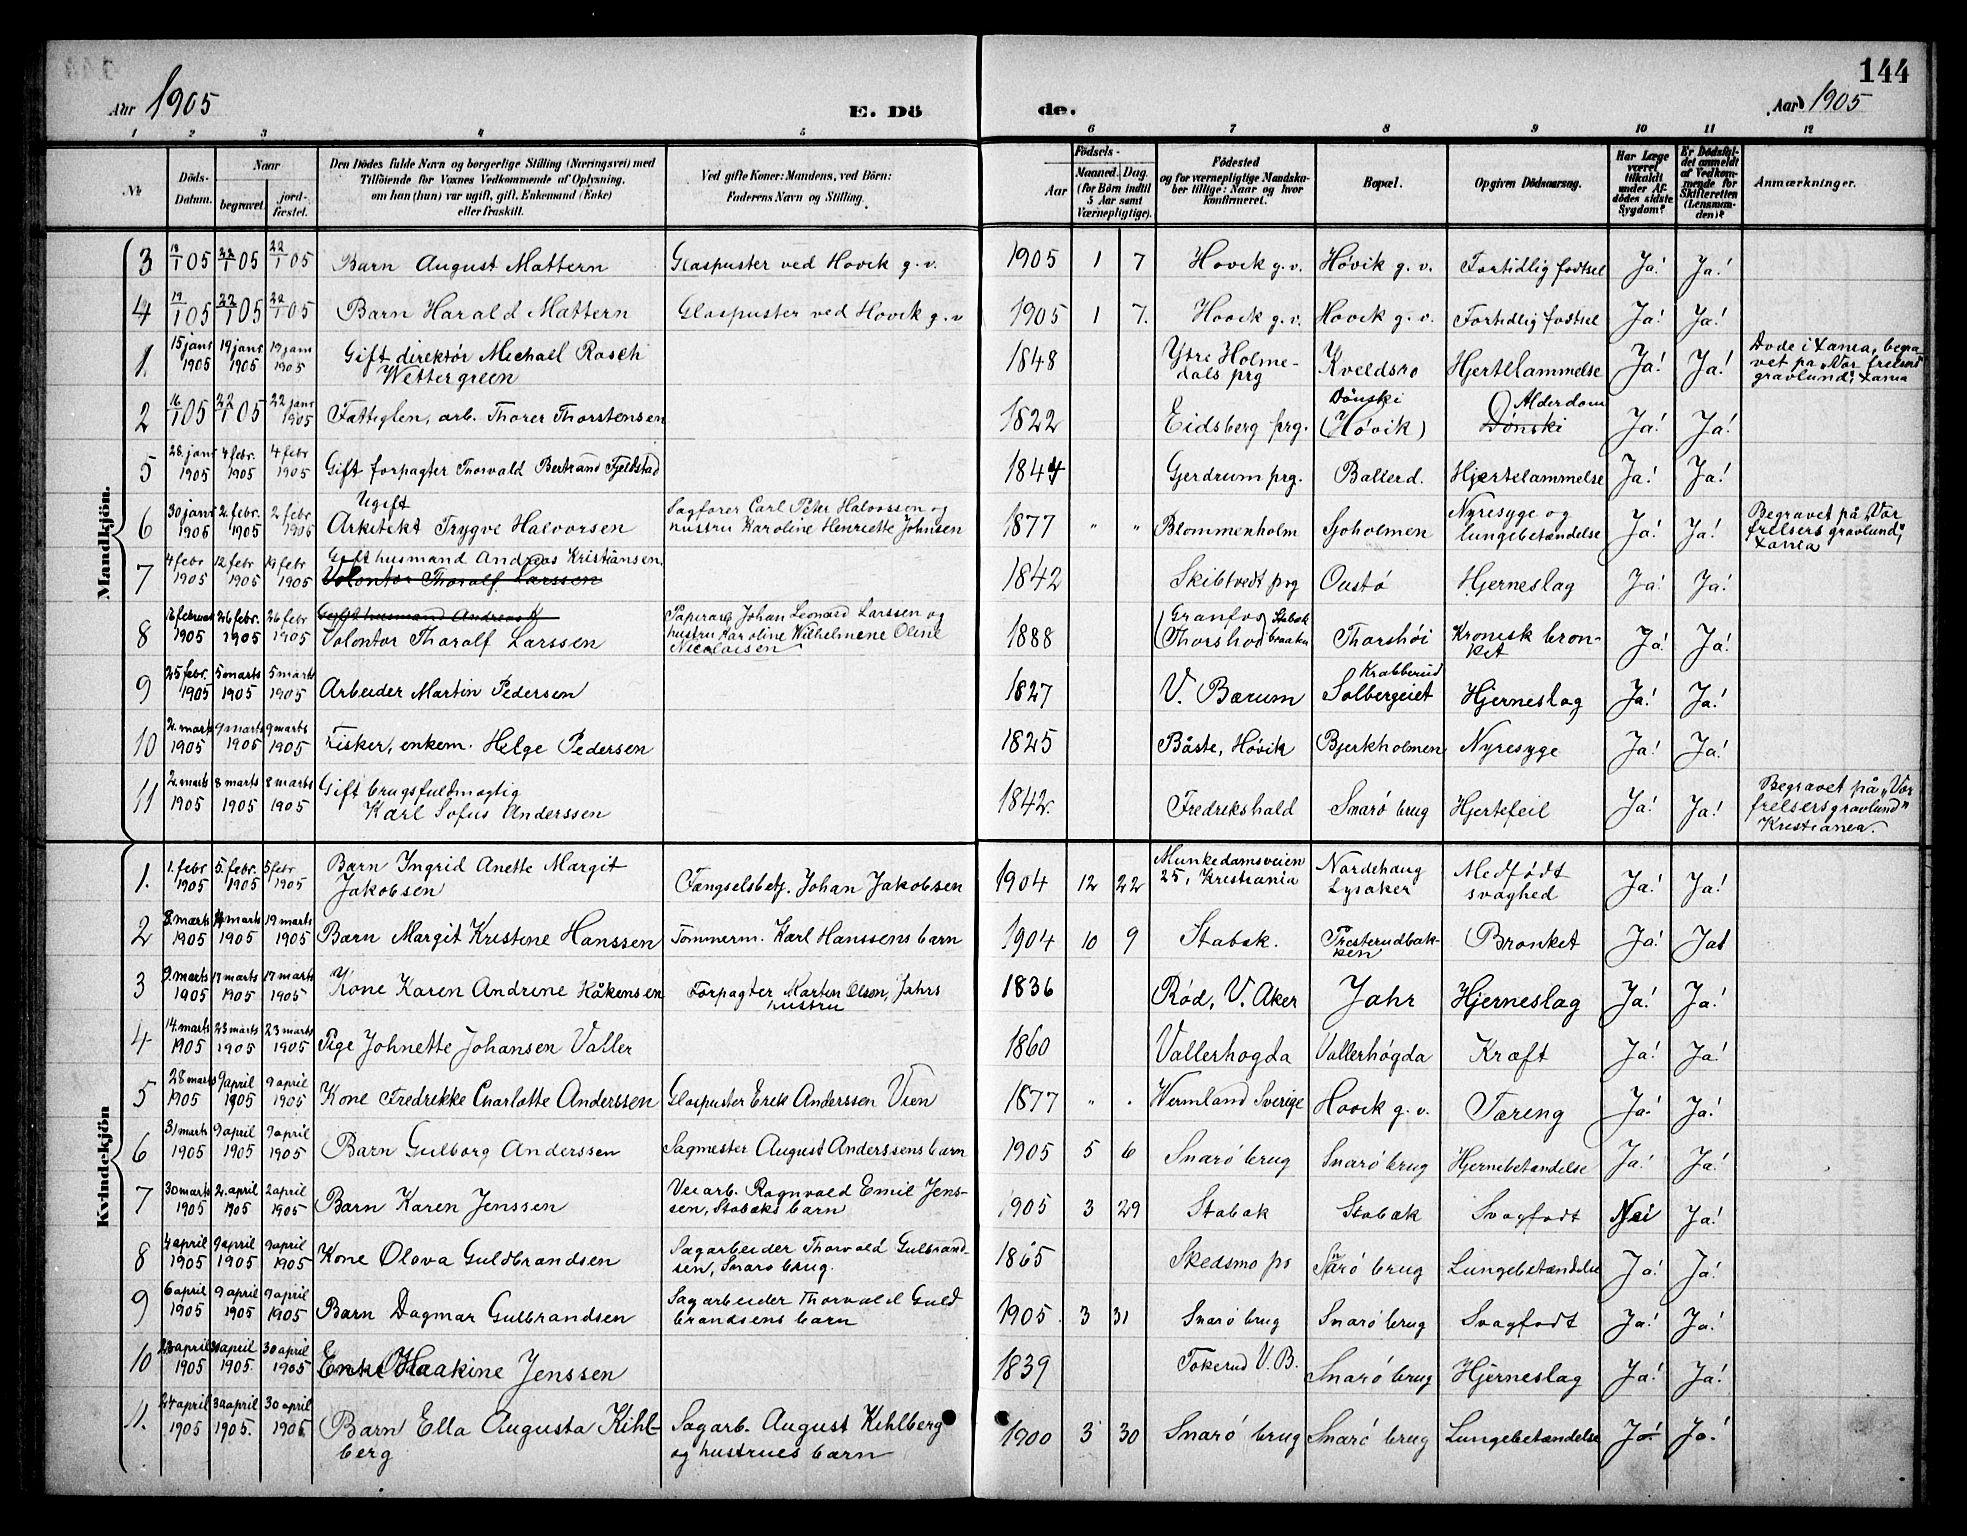 144
Aar 1905
E. Dö de.
Aar 1905
1 2 3 4 5 6 7 8 9 10 11 12
№
Döds-Datum.
Naar
begravet.
jord-fæstet.
Den Dödes fulde Navn og borgerlige Stilling (Næringsvei) med
Tilföiende for Voxnes Vedkommende af Oplysning,
om han (hun) var ugift, gift, Enkemand (Enke)
eller fraskilt.
Ved gifte Koner: Mandens, ved Börn:
Faderens Navn og Stilling.
Födsels-
Aar
Maaned. Dag.
(for Börn indtil
5 Aar samt
Værnepligtige).
Födested
og for værnepligtige Mandskaber tillige: Naar og hvor
konfirmeret.
Bopæl.
Opgiven Dödsaarsag.
Har Læge
været
tilkaldt
under Afdödes sidste
Sygdom?
Er Dödsfaldet anmeldt
af Vedkommende for
Skifteretten
(Lensmanden)?
Anmærkninger.
Mandkjön.
3 18/1 05 22/1 05 22/1 05 Barn August Mattern Glaspuster ved Hovik g. v. 1905 1 7 Hovik g. v. Høvik g. v. Fortidlig fødtsel Ja! Ja!
4 19/1 05 22/1 05 22/1 05 Barn Harald Mattern Glaspuster ved Hovik g. v 1905 1 7. Hovik g. v. Hovik g. v. Fortidlig fodtsel Ja! Ja!
1. 15 janr 1905 19 janr 1905 19 janr 1905 Gift direktør Michael Rasch
Wettergreen 1848 Ytre Holmedals prg Kveldsro Hjertelammelse Ja! Ja! Dode i Xania, begravet på "Vor frelsers gravlund", Xania
2 16/1 05 22/1 05 22 janr 1905 Fattiglem, arb. Thorer Thorstensen 1822 Eidsberg prg. Dønski (Høvik) Alderdom Dønski Ja! Ja!
5 28. janr 1905 4 febr. 1905 4 febr 1905 Gift forpagter Thorvald Bertrand Fjeldstad 1844 Gjerdrum prg. Ballerd. Hjertelammelse Ja! Ja!
6 30 janr 1905 2. febr. 1905 2 febr 1905 Ugift
Arkitekt Trygve Halvorsen Sagfører Carl Peter Halvorssen og
hustru Karoline Henriette Johnsen 1877 " " Blommenholm Sjoholmen Nyresyge og
lungebetændelse Ja! Ja! Begravet på "Vor
frelsers gravlund",
Xania
7 4 febr 1905 12 febr 1905 19 febr 1905 Gift husmand Andreas Kristiansen
Volontor Thorolf Larssen 1842 Skibtvedt prg Oustø Hjerneslag Ja! Ja!
8 16 februar 1905 26 febr 1905 26 febr 1905 Gift husmand Andreas K
Volontor Thorolf Larssen Papirarb Johan Leonard Larssen og
hustru Karoline Wilhelmine Oline
Nicolaisen 1888 (Granfos Stabæk
Thorshov braaten Thorshøi Kronisk bronket Ja! Ja!
9 25 febr. 1905 5 marts 1905 5 marts 1905 Arbeider Martin Pedersen 1827 V. Bærum Krabberud
Solbergeiet Hjerneslag Ja! Ja!
10 2. marts 1905 9 marts 1905 9 marts 1905 Fisker, enkem. Helge Pedersen 1825 Båste, Høvik Bjerkholmen Nyresyge Ja! Ja!
11 2. marts 1905 8 marts 1905 8 marts 1905 Gift brugsfuldmægtig
Karl Sofus Anderssen 1842. Fredrikshald Snarø brug Hjertefeil Ja! Ja! Begravet på "Vor
frelsers gravlund"
Kristiania.
Kvindekjön
1. 1. febr 1905 5. febr. 1905 5 febr 1905 Barn Ingrid Anette Margit
Jakobsen Fængselsbetj. Johan Jakobsen 1904 12 22 Munkedamsveien
25, Kristiania Nordehaug
Lysaker Medfødt
svaghed Ja! Ja!
2 8. marts 1905 19 marts 1905 19 marts 1905 Barn Margit Kristine Hanssen Tømmerm. Karl Hanssens barn 1904 10 9 Stabæk. Presterudbakken Bronket Ja! Ja!
3 9. marts 1905 17 marts 1905 17 marts 1905 Kone Karen Andrine Håkensen Forpagter Marten Olsen, Jahrs
hustru 1836 Rød, V. Aker Jahr Hjerneslag Ja! Ja!
4 14. marts 1905 23 marts 1905 23 marts 1905 Pige Johnette Johansen Valler 1860 Vallerhogda Vallerhögda Kræft Ja! Ja!
5 28 marts 1905 9 april 1905 9 april 1905 Kone Fredrikke Charlotte Anderssen Glaspuster Erik Anderssen Vien 1877 " " Vermland Sverige Hovik g. v. Tæring Ja! Ja!
6 31 marts 1905 9 april 1905 9 april 1905 Barn Gulborg Anderssen Sagmester August Anderssens barn 1905 5 6 Snarø brug Snarø brug Hjernebetændelse Ja! Ja!
7 30 marts 1905 2. april 1905 2 april 1905 Barn Karen Jenssen Veiarb. Ragnvald Emil Jenssen, Stabæks barn 1905 3 29 Stabæk Stabæk Svagfødt Nei Ja!
8 4 april 1905 9 april 1905 9 april 1905 Kone Olava Guldbrandsen Sagarbeider Thorvald Gulbrandsen, Snarø brug. 1865 Skedsmo ps Snarø brug Lungebetændelse Ja! Ja!
9 6 april 1905 9 april 1905 9 april 1905 Barn Dagmar Gulbrandsen Sagarbeider Thorvald Guldbrandsens barn 1905 3 31 Snarø brug Snarø brug Svagfødt Ja! Ja!
10 23 april 1905 30 april 1905 30 april 1905 Enke Haakine Jenssen 1839 Tokerud V. B. Snarø brug Hjerneslag Ja! Ja!
11. 24 april 1905 30 april 1905. 30 april 1905 Barn Ella Augusta Kihlberg Sagarb. August Kihlberg
og hustrues barn 1900 3 30 Snarø brug Snarø brug Lungebetændelse Ja! Ja!